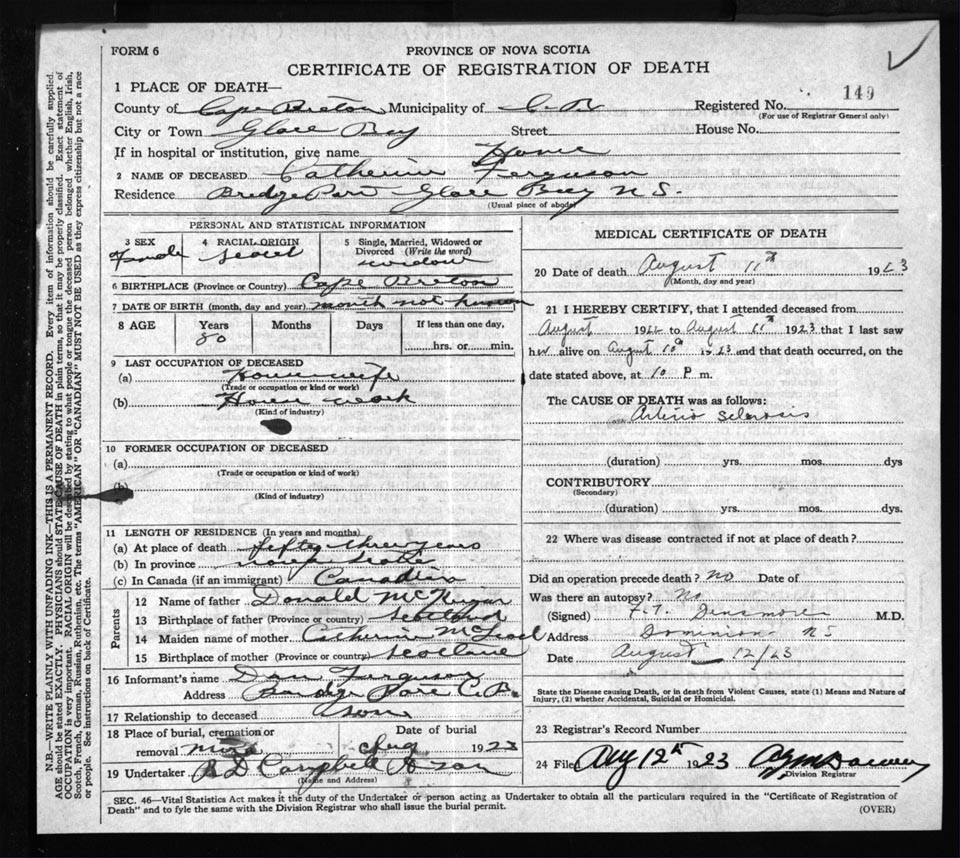 FORM 6
PROVINCE OF NOVA SCOTIA
CERTIFICATE OF REGISTRATION OF DEATH
1 PLACE OF DEATH—
County of Cape Breton Municipality of C. B. Registered No. 149
(For use of Registrar General only)
City or Town Glace Bay Street House No.
If in hospital or institution, give name Home
2 NAME OF DECEASED Catherine Ferguson
Residence Bridgeport Glace Bay N.S.
(Usual place of abode)
PERSONAL AND STATISTICAL INFORMATION
3 SEX
Female
4 RACIAL ORIGIN
Scotch
5 Single, Married, Widowed or Divorced (Write the word)
widow
6 BIRTHPLACE (Province or Country) Cape Breton
7 DATE OF BIRTH (month, day and year) month not known
8 AGE Years Months Days If less than one day,
80 hrs. or min.
9 LAST OCCUPATION OF DECEASED
(a) Housewife
(Trade or occupation or kind or work)
(b) House work
(Kind of industry)
10 FORMER OCCUPATION OF DECEASED
(a)
(Trade or occupation or kind of work)
(b)
(Kind of industry)
11 LENGTH OF RESIDENCE (In years and months)
(a) At place of death fifty three years
(b) In province Nova Scotia
(c) In Canada (if an immigrant) Canadian
Parents
12 Name of father Donald
13 Birthplace of father (Province or country) Scotland
14 Maiden name of mother Catherine McLeod
15 Birthplace of mother (Province or country) Scotland
16 Informant's name Dan Ferguson
Address Bridge Port C.B.
17 Relationship to deceased son
18 Place of burial, cremation or Date of burial
removal Mira Aug 1923
19 Undertaker A D Campbell & son
(Name and Address)
MEDICAL CERTIFICATE OF DEATH
20 Date of death August 11th 1923
(Month, day and year)
21 I HEREBY CERTIFY, that I attended deceased from
August 1922 to August 11th 1923 that I last saw
her alive on August 10th 1923 and that death occurred, on the
date stated above, at 10 P m.
The CAUSE OF DEATH was as follows:
Arterio sclerosis
(duration) yrs. mos. dys
CONTRIBUTORY
(Secondary)
(duration) yrs. mos. dys.
22 Where was disease contracted if not at place of death?
Did an operation precede death? No Date of
Was there an autopsy? No
(Signed) F.T. Densmore M.D.
Address Dominion NS
Date August 12/23
State the Disease causing Death, or in death from Violent Causes, state (1) Means and Nature of
Injury, (2) whether Accidental, Suicidal or Homicidal.
23 Registrar's Record Number
24 File Aug 12th 1923
Division Registrar
SEC. 46—Vital Statistics Act makes it the duty of the Undertaker or person acting as Undertaker to obtain all the particulars required in the "Certificate of Registration of
Death" and to fyle the same with the Division Registrar who shall issue the burial permit. (OVER)
N.B.—WRITE PLAINLY WITH UNFADING INK—THIS IS A PERMANENT RECORD. Every item of information should be carefully supplied.
AGE should be stated EXACTLY. PHYSICIANS should STATE CAUSE OF DEATH in plain terms, so that it may be properly classified. Exact statement of
OCCUPATION is very important. RACIAL ORIGIN will be described by stating to what people or tongue the deceased person belonged whether English, Irish,
Scotch, French, German, Russian, Ruthenian, etc. The terms "AMERICAN" OR "CANADIAN" MUST NOT BE USED as they express citizenship but not a race
or people. See instructions on back of Certificate.